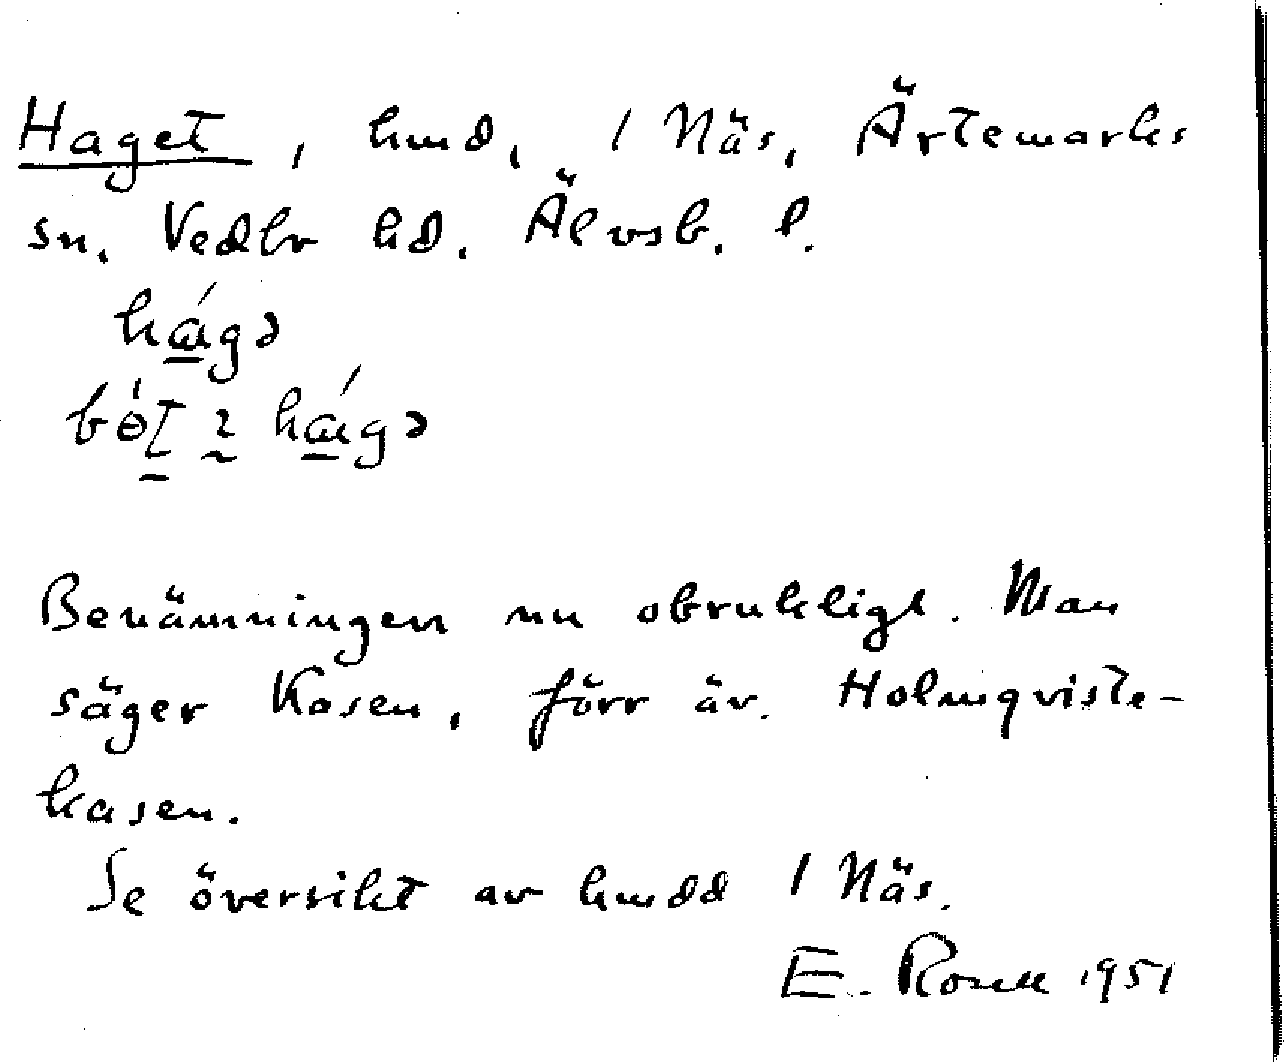 Haget, hmd, 1 Näs, Ärtemarks
sn. Vedbo hd. Älvsb. l.
hágə
bót i hágə
Benämningen nu obrukligt. Man
säger Kasen, förr äv. Holmqviste-
kasen.
Se översikt av hmdd 1 Näs.
E. 1951